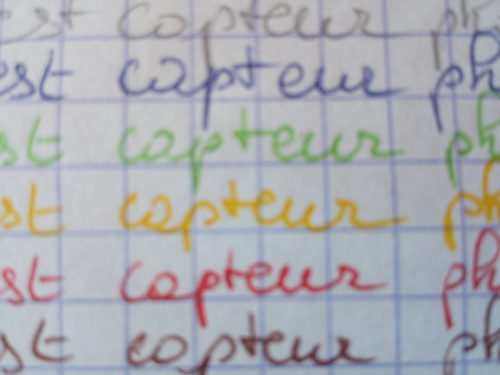 est capteur ph
est capteur ph
st capteur ph
st capteur ph
st capteur ph
st capteur ph